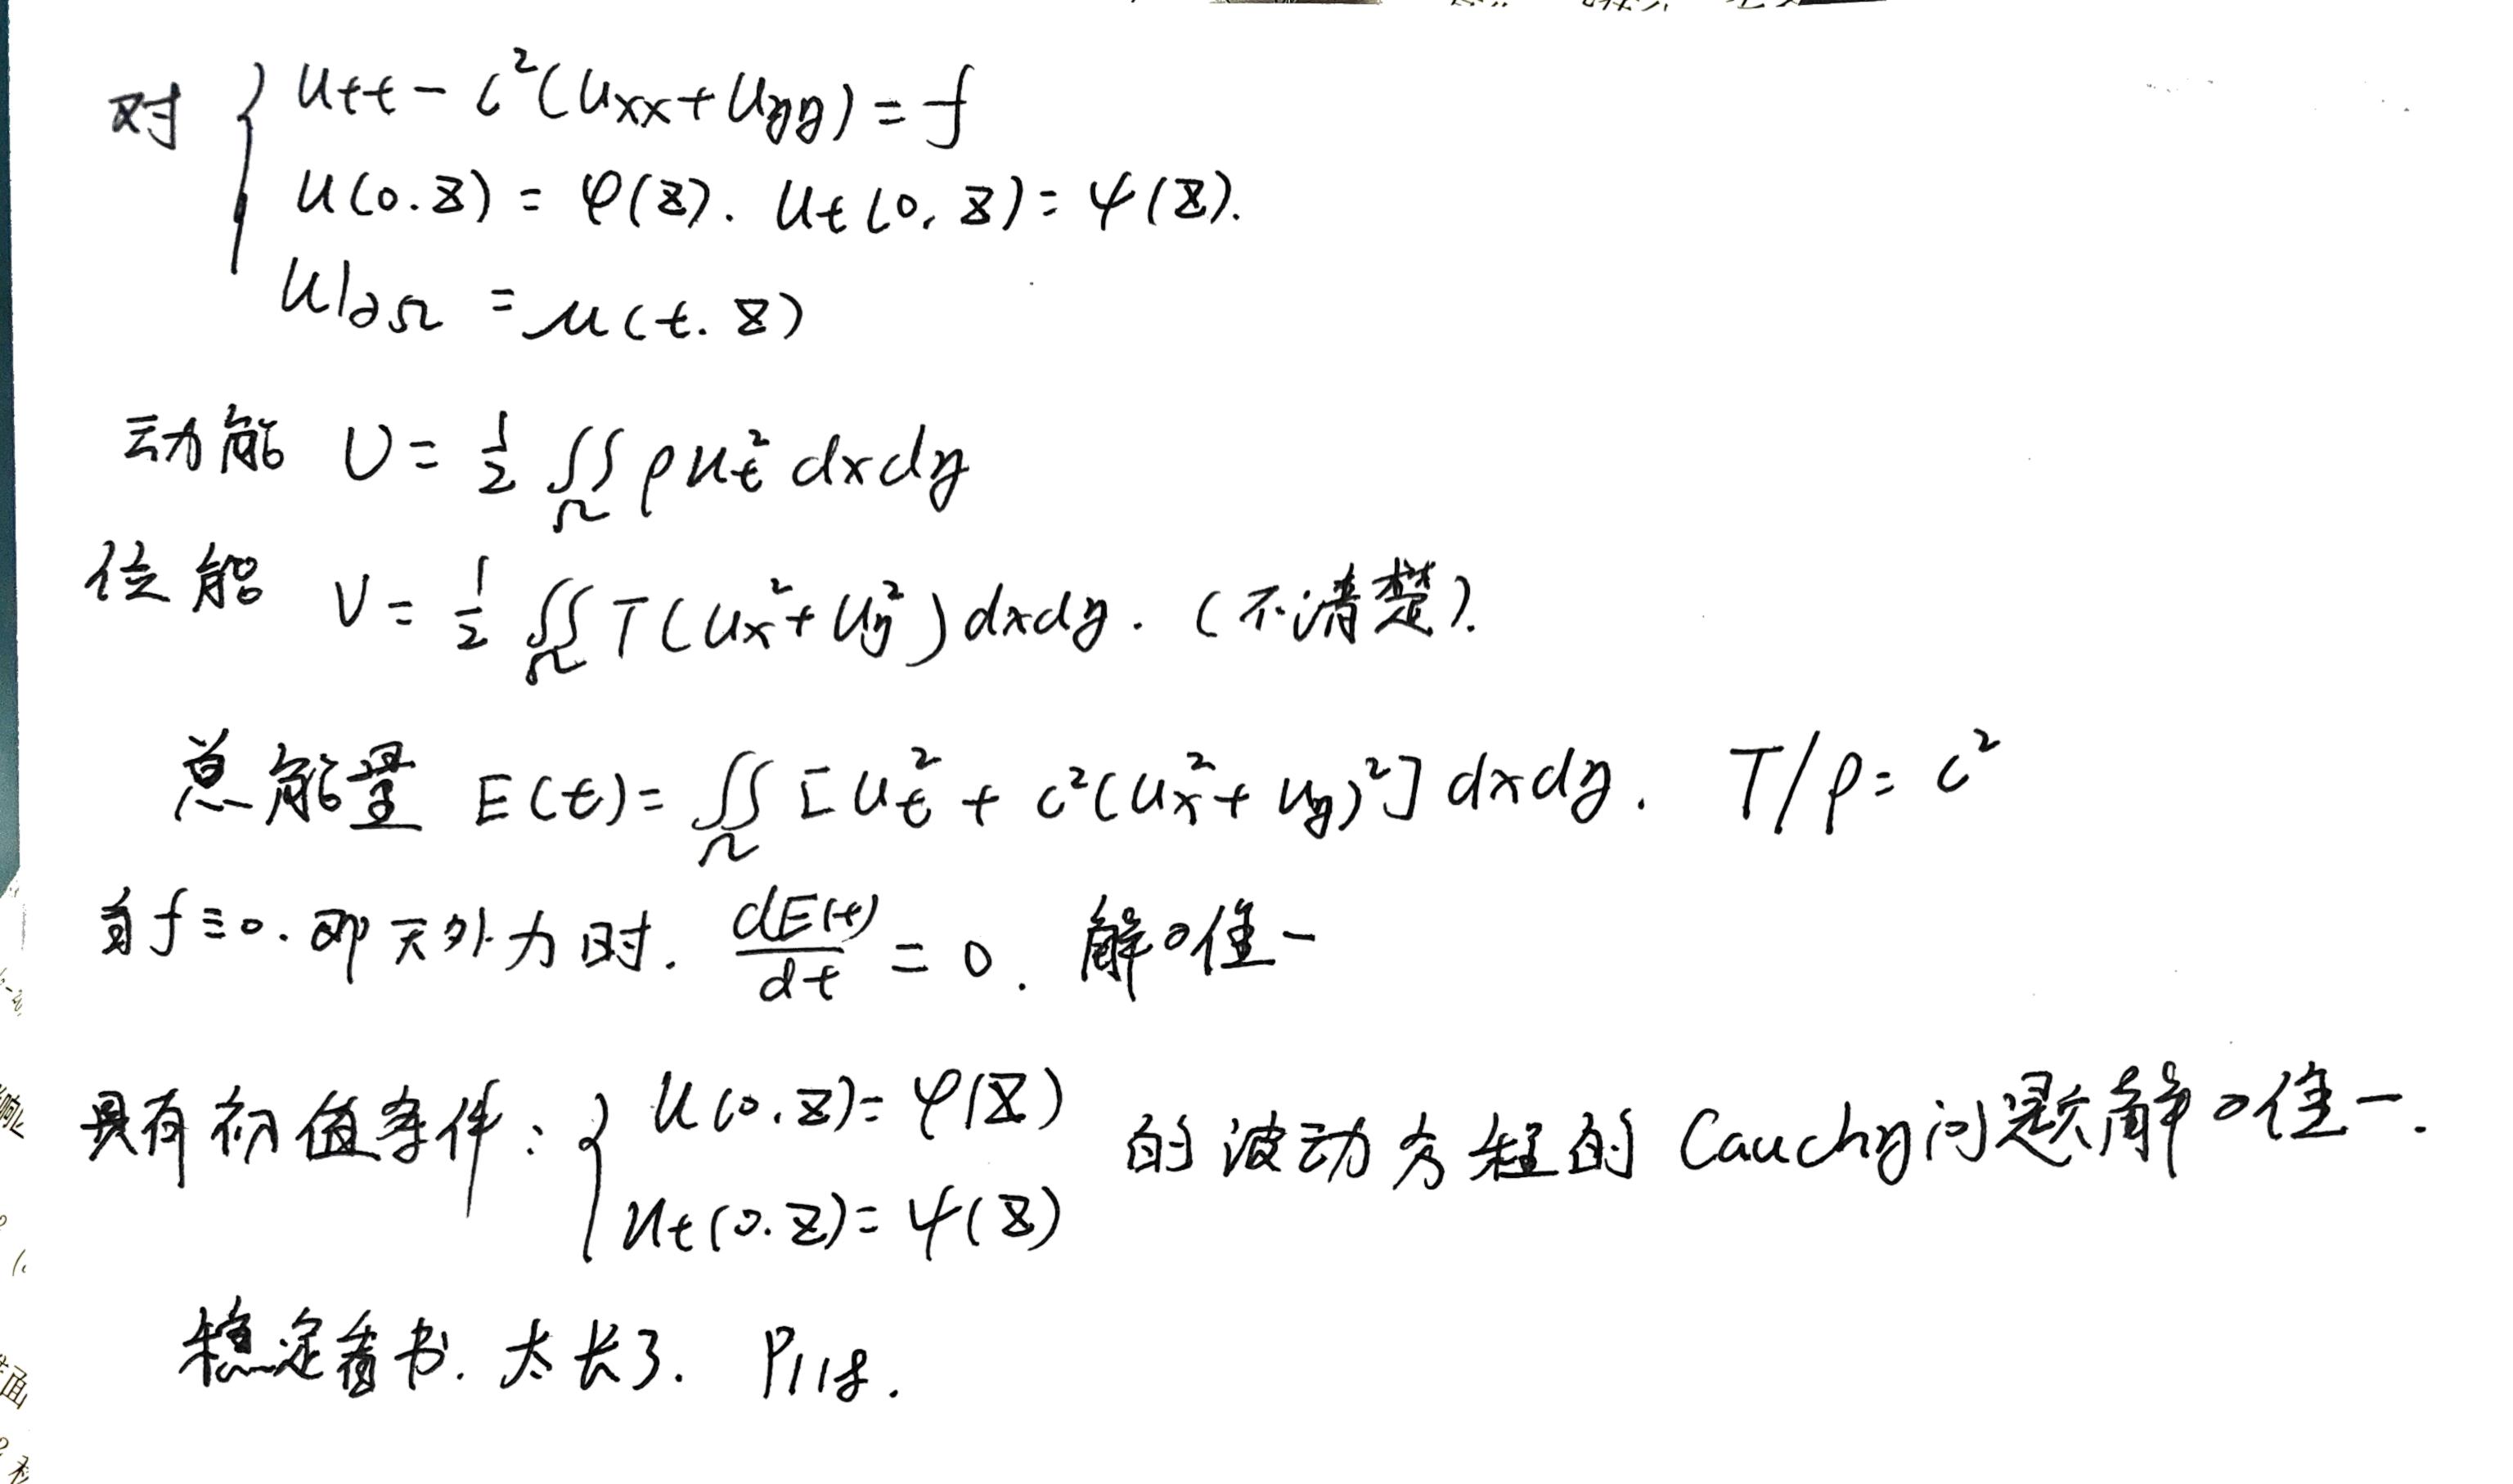 对 { utt - c²(uxx + uyy) = f
u(0.z) = φ(z). ut(0, z) = ψ(z).
u|∂Ω = μ(t. z)
动能 U = 1/2 ∬Ω ρut² dxdy
位能 V = 1/2 ∬Ω T(ux² + uy²)dxdy. (不清楚).
总能量 E(t) = ∬Ω [ut² + c²(ux² + uy)²] dxdy. T/ρ = c²
当 f≡0. 即无外力时. dE(t)/dt = 0. 解唯一
具有初值条件: { u(0. z) = φ(z) 的波动方程的 Cauchy问题解唯一.
ut(0. z) = ψ(z)
稳定看书. 太长了. P118.